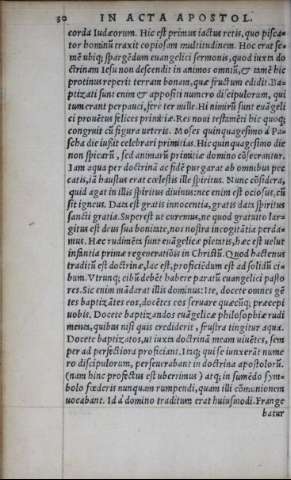 30 IN ACTA APOSTOL.
corda Iudæorum. Hic est primus iactus retis, quo pisca-
tor hominũ traxit copiosam multitudinem. Hoc erat se-
mẽ ubiq; spargẽdum euangelici sermonis, quod iuxta do
ctrinam Iesu non descendit in animos omniũ, & tamẽ hic
protinus reperit terram bonam, quæ fructum edidit. Ba-
ptizati sunt enim & appositi numero discipulorum, qui
tum erant perpauci, ferè ter mille. Hi nimirũ sunt euãgeli
ci prouẽtus felices primitiæ. Res noui testamẽti hic quoq;
congruit cũ figura ueteris. Moses quinquagesimo à Pa-
scha die iussit celebrari primitias. Hic quinquagesimo die
non spicarũ, sed animarũ primitiæ domino cõsecrantur.
Iam aqua per doctrinã ac fidẽ purgarat ab omnibus pec
catis, iã hausius erat cœlestis ille spiritus. Nunc cõsidera,
quid agat in illis spiritus diuinus: nec enim est ociosus, cũ
sit igneus. Data est gratis innocentia, gratis data spiritus
sancti gratia. Superest ut curemus, ne quod gratuito lar-
gitus est deus sua bonitate, nos nostra incogitãtia perda-
mus. Hæc rudimẽta sunt euãgelicæ pietatis, hæc est uelut
infantia primæ regenerationis in Christũ. Quod hactenus
traditũ est doctrinæ, lac est, proficiẽdum est ad solidũ ci-
bum. Vtrunq; cibũ debẽt habere paratũ euangelici pasto
res. Sic enim mãdarat illis dominus: Ite, docete omnes gẽ
tes baptizãtes eos, docẽtes eos seruare quæcũq; præcepi
uobis. Docete baptizandos euãgelicæ philosophiæ rudi
menta, quibus nisi quis crediderit, frustra tingitur aqua.
Docete baptizatos, ut iuxta doctrinã meam uiuãtes, sem
per ad perfectiora proficiant. Itaq; qui se iunxerãt nume
ro discipulorum, perseuerabant in doctrina apostolorũ.
(nam hinc profectus est uberrimus) atq; in sumẽdo sym-
bolo fœderis nunquam rumpendi, quam illi cõmunionem
uocabant. Id à domino traditum erat huiusmodi. Frange
batur